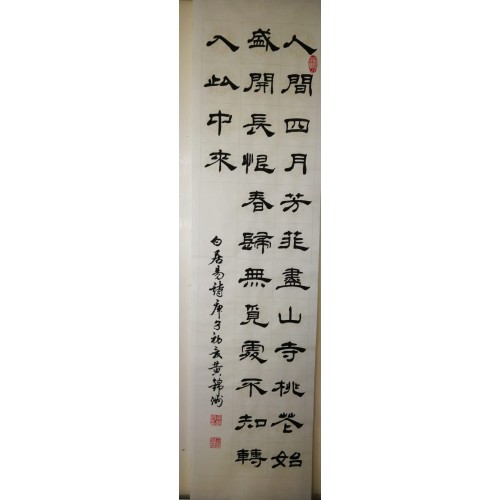 人間四月芳菲盡山寺桃花始
盛開長恨春歸無覓處不知轉
入此中來
白居易詩庚子初黄錦